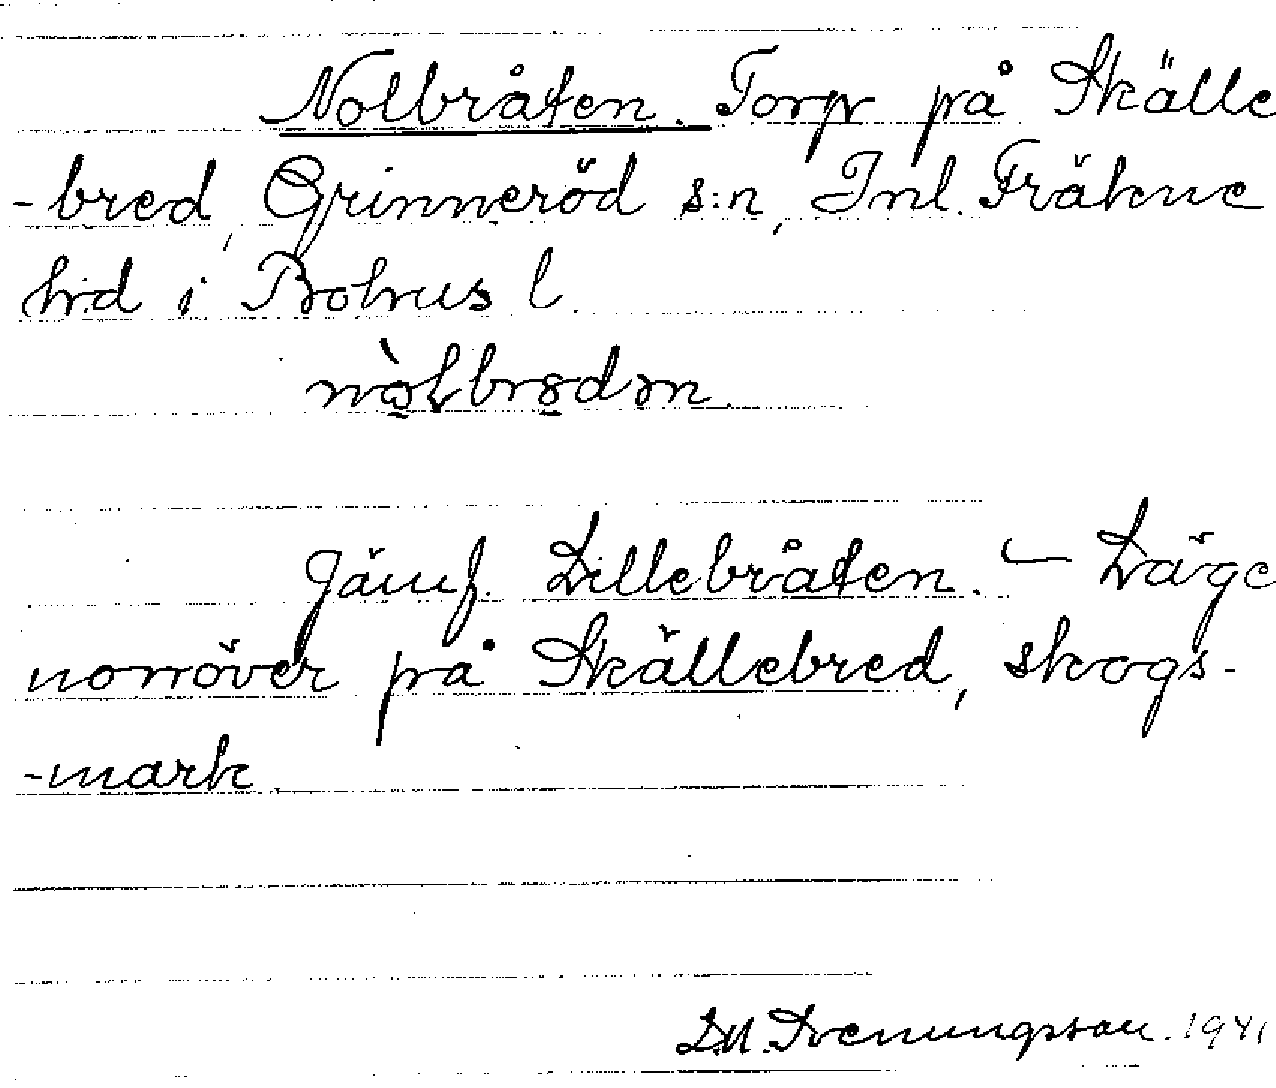 Nolbråten. Torp på Skälle
-bred, Grinneröd s:n, Inl. Fräkne
hrd i Bohus l.
Jämf. Lillebråten. — Läge
norröver på Skällebred, skogs-
-mark
Svenungsson. 1941